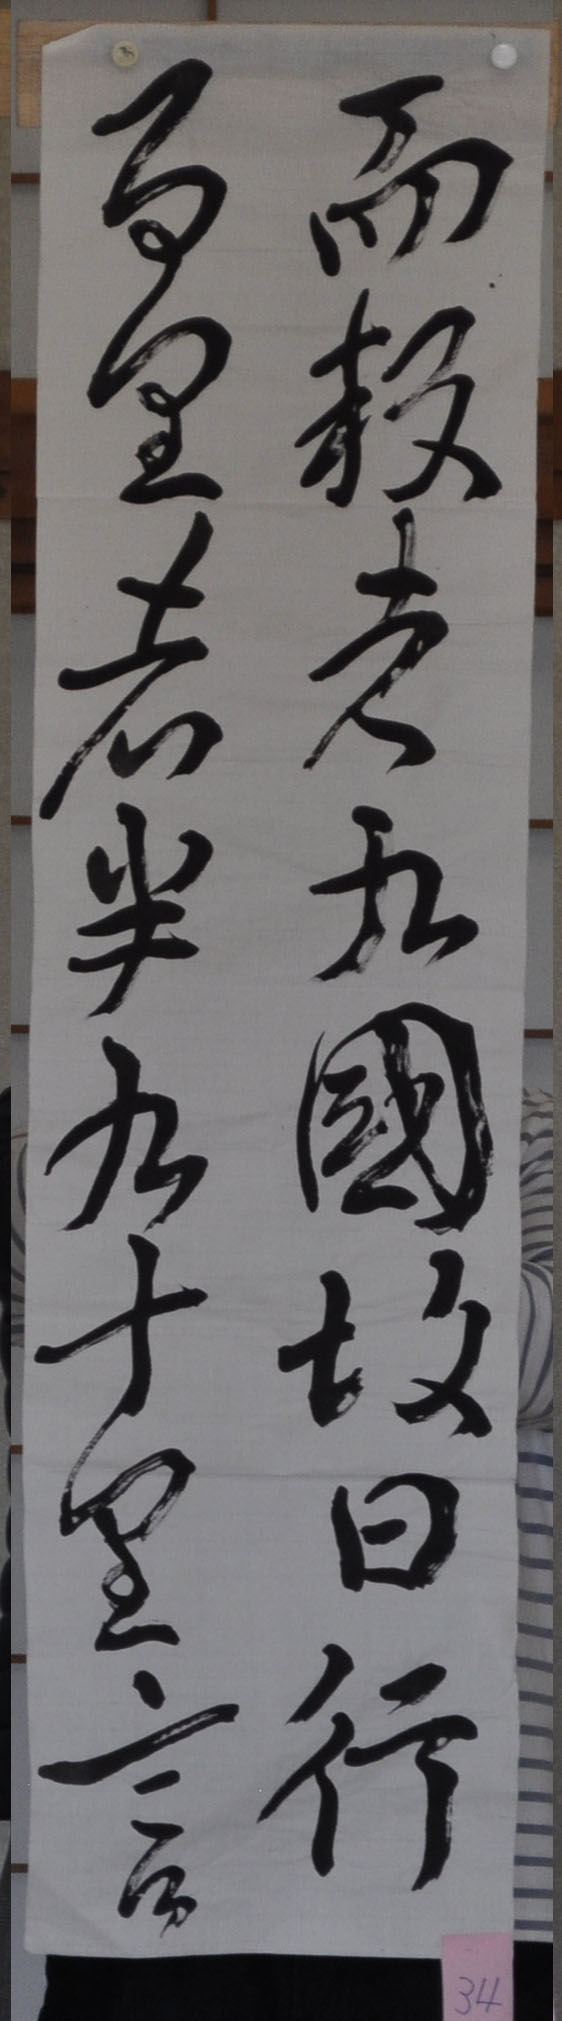 而叛者九國故曰行
百里者半九十里言
34